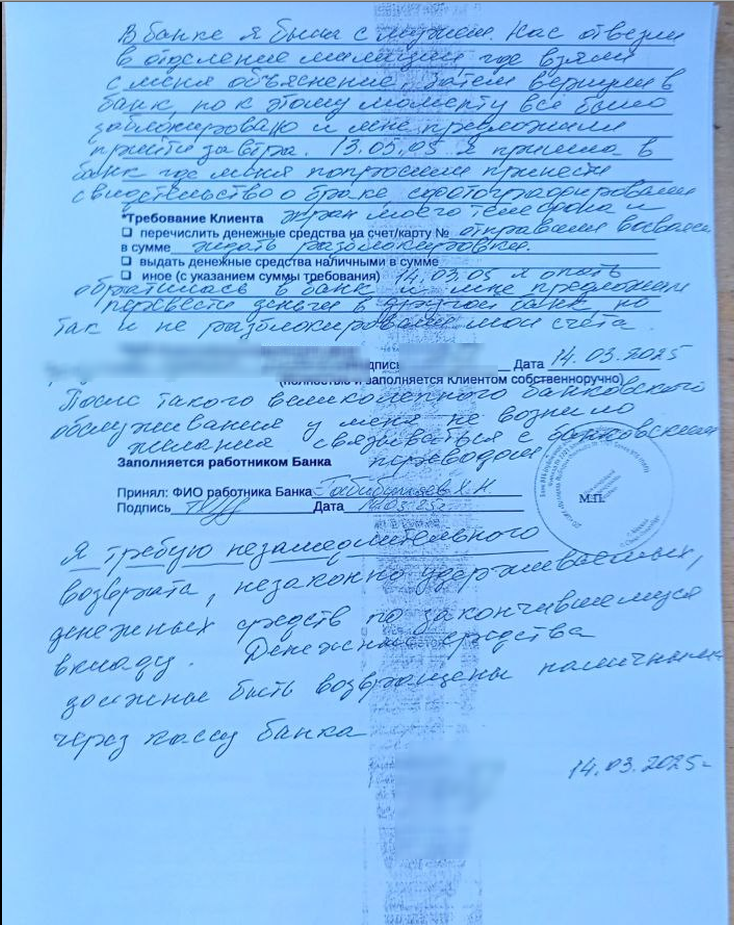 В банке я была с мужем. Нас отвезли
в отделение милиции где взяли
с меня объяснение, затем вернули в
банк, но к этому моменту все было
заблокировано и мне предложили
прийти завтра. 13.03.05 я пришла в
банк где меня попросили принести
свидетельство о браке, сфотографировали
*Требование Клиента экран моего телефона и
перечислить денежные средства на счет/карту № отправили восвояси
в сумме ждать разблокировки.
выдать денежные средства наличными в сумме
иное (с указанием суммы требования) 14.03.05 я опять
обратилась в банк и мне предложили
перевести деньги в другой банк, но
так и не разблокировали мои счета.
Дата 14.03.2025
(полностью заполняется Клиентом собственноручно)
После такого великолепного банковского
обслуживания у меня не возникло
желания связываться с банковским
Заполняется работником Банка переводом
Принял: ФИО работника Банка Х.Н.
Подпись Дата 14.03.25г
М.П.
Я требую незамедлительного
возврата, незаконно удерживаемых,
денежных средств по закончившемуся
вкладу. Денежные средства
должны быть возвращены наличными
через кассу банка
14.03.2025г